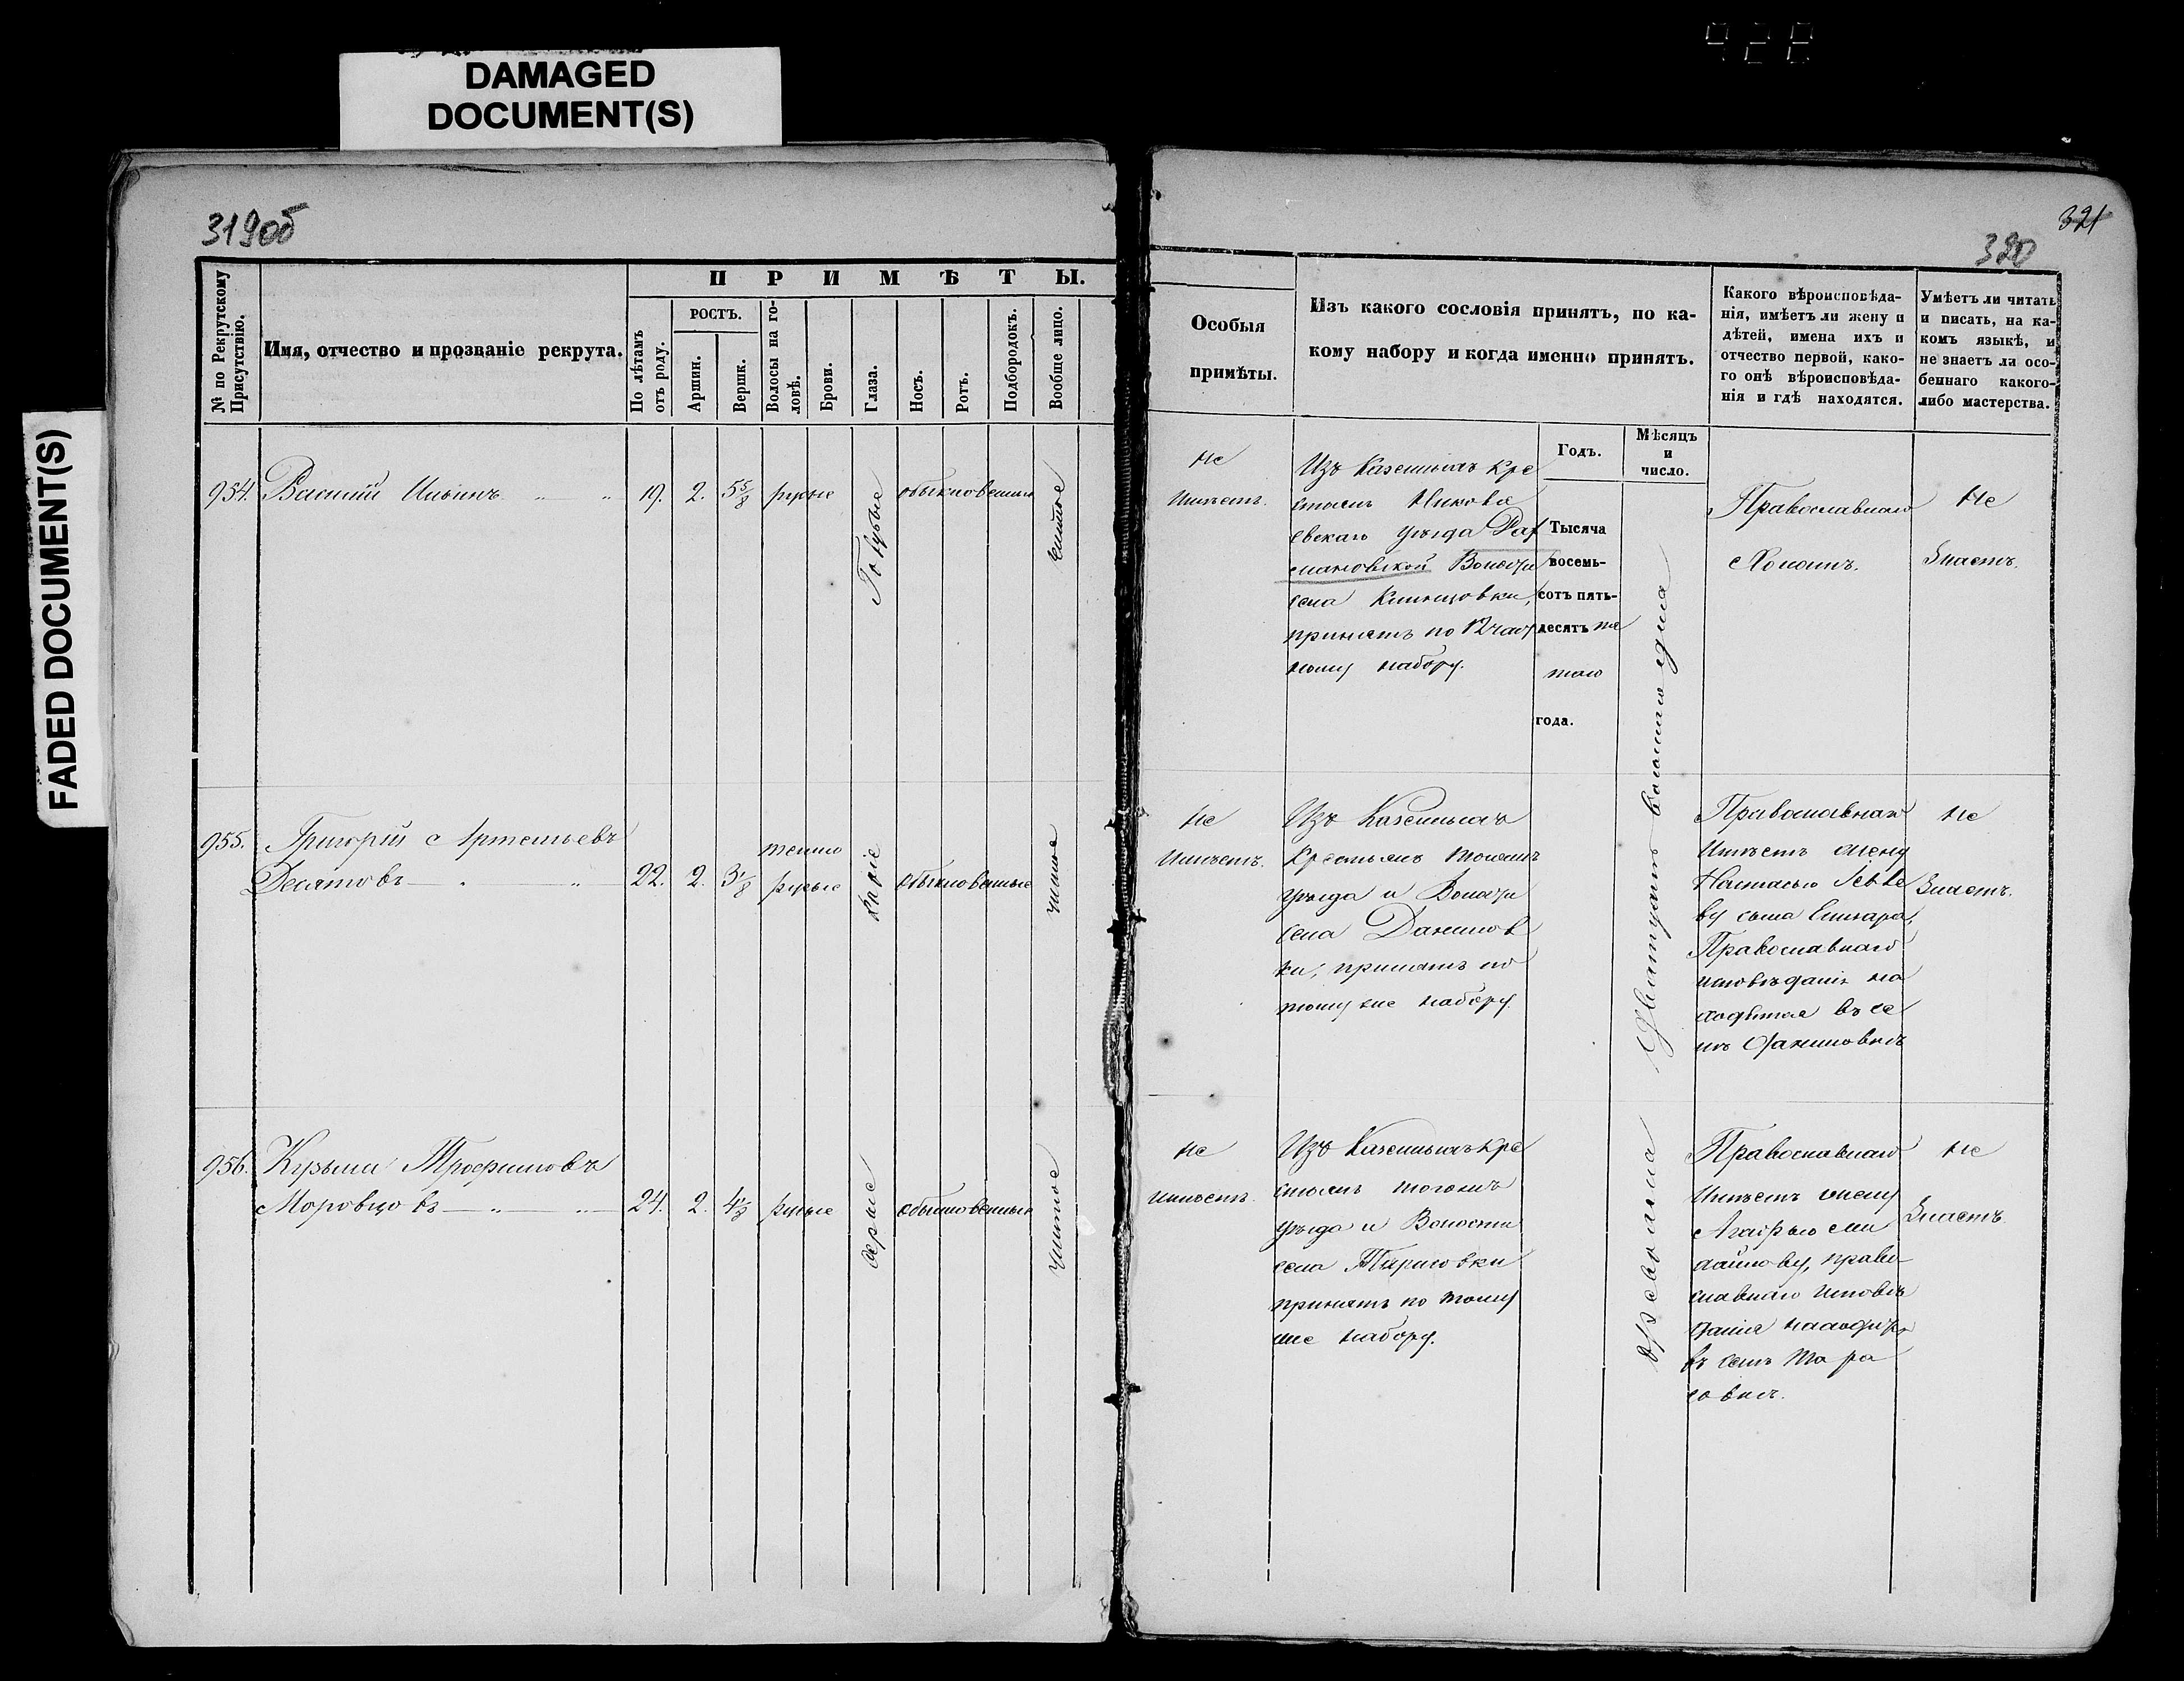 DAMAGED
DOCUMENT(S)
FADED DOCUMENT(S)
319об
№ по Рекрутскому
Присутствію.
Имя, отчество и прозваніе рекрута.
ПРИМѢТЫ.
По лѣтамъ
отъ роду.
РОСТЪ.
Аршин.
Вершк.
Волосы на го-
ловѣ.
Брови.
Глаза.
Носъ.
Ротъ.
Подбородокъ.
Вообще лицо.
954. Василій Ильинъ 19. 2. 5 5/8 русые Голубые обыкновенные чистое
955. Григорій Артемьевъ
Десятовъ 22. 2. 3 1/8 темно
русые Каріе обыкновенные чистое
956. Кузьма Трофимовъ
Моровцовъ 24. 2. 4 1/8 русые Серые обыкновенные чистое
321
320
Особыя
примѣты.
Изъ какого сословія принятъ, по ка-
кому набору и когда именно принятъ.
Какого вѣроисповѣда-
нія, имѣетъ ли жену и
дѣтей, имена ихъ и
отчество первой, како-
го онѣ вѣроисповѣда-
нія и гдѣ находятся.
Умѣетъ ли читать
и писать, на ка-
комъ языкѣ, и
не знаетъ ли осо-
беннаго какого-
либо мастерства.
Годъ.
Мѣсяцъ
и
число.
Не
Имѣетъ.
Изъ Казенныхъ Кре
стьянъ Николае
вскаго уѣзда
мановской Волости
села Клинцовки,
принятъ по 12 част
ному набору.
Тысяча
восемь-
сотъ пять-
десятъ пя
таго
года.
Февраля Двадцать восьмаго дня
Православнаго
Холостъ.
Не
Знаетъ.
Не
Имѣетъ.
Изъ Казенныхъ
Крестьянъ тогожъ
уѣзда и Волости
села Данилов
ки, принятъ по
тому же набору.
Православнаго
Имѣетъ жену
Настасью
Православнаго
исповѣданія на
ходится въ се
лѣ Даниловкѣ
Не
Знаетъ.
Не
Имѣетъ.
Изъ Казенныхъ Кре
стьянъ тогожъ
уѣзда и Волости
села
принятъ по тому
же набору.
Православнаго
Имѣетъ жену
Агафью Ми
хайлову, право-
славнаго исповѣ
данія
въ селѣ Тара
совкѣ.
Не
Знаетъ.